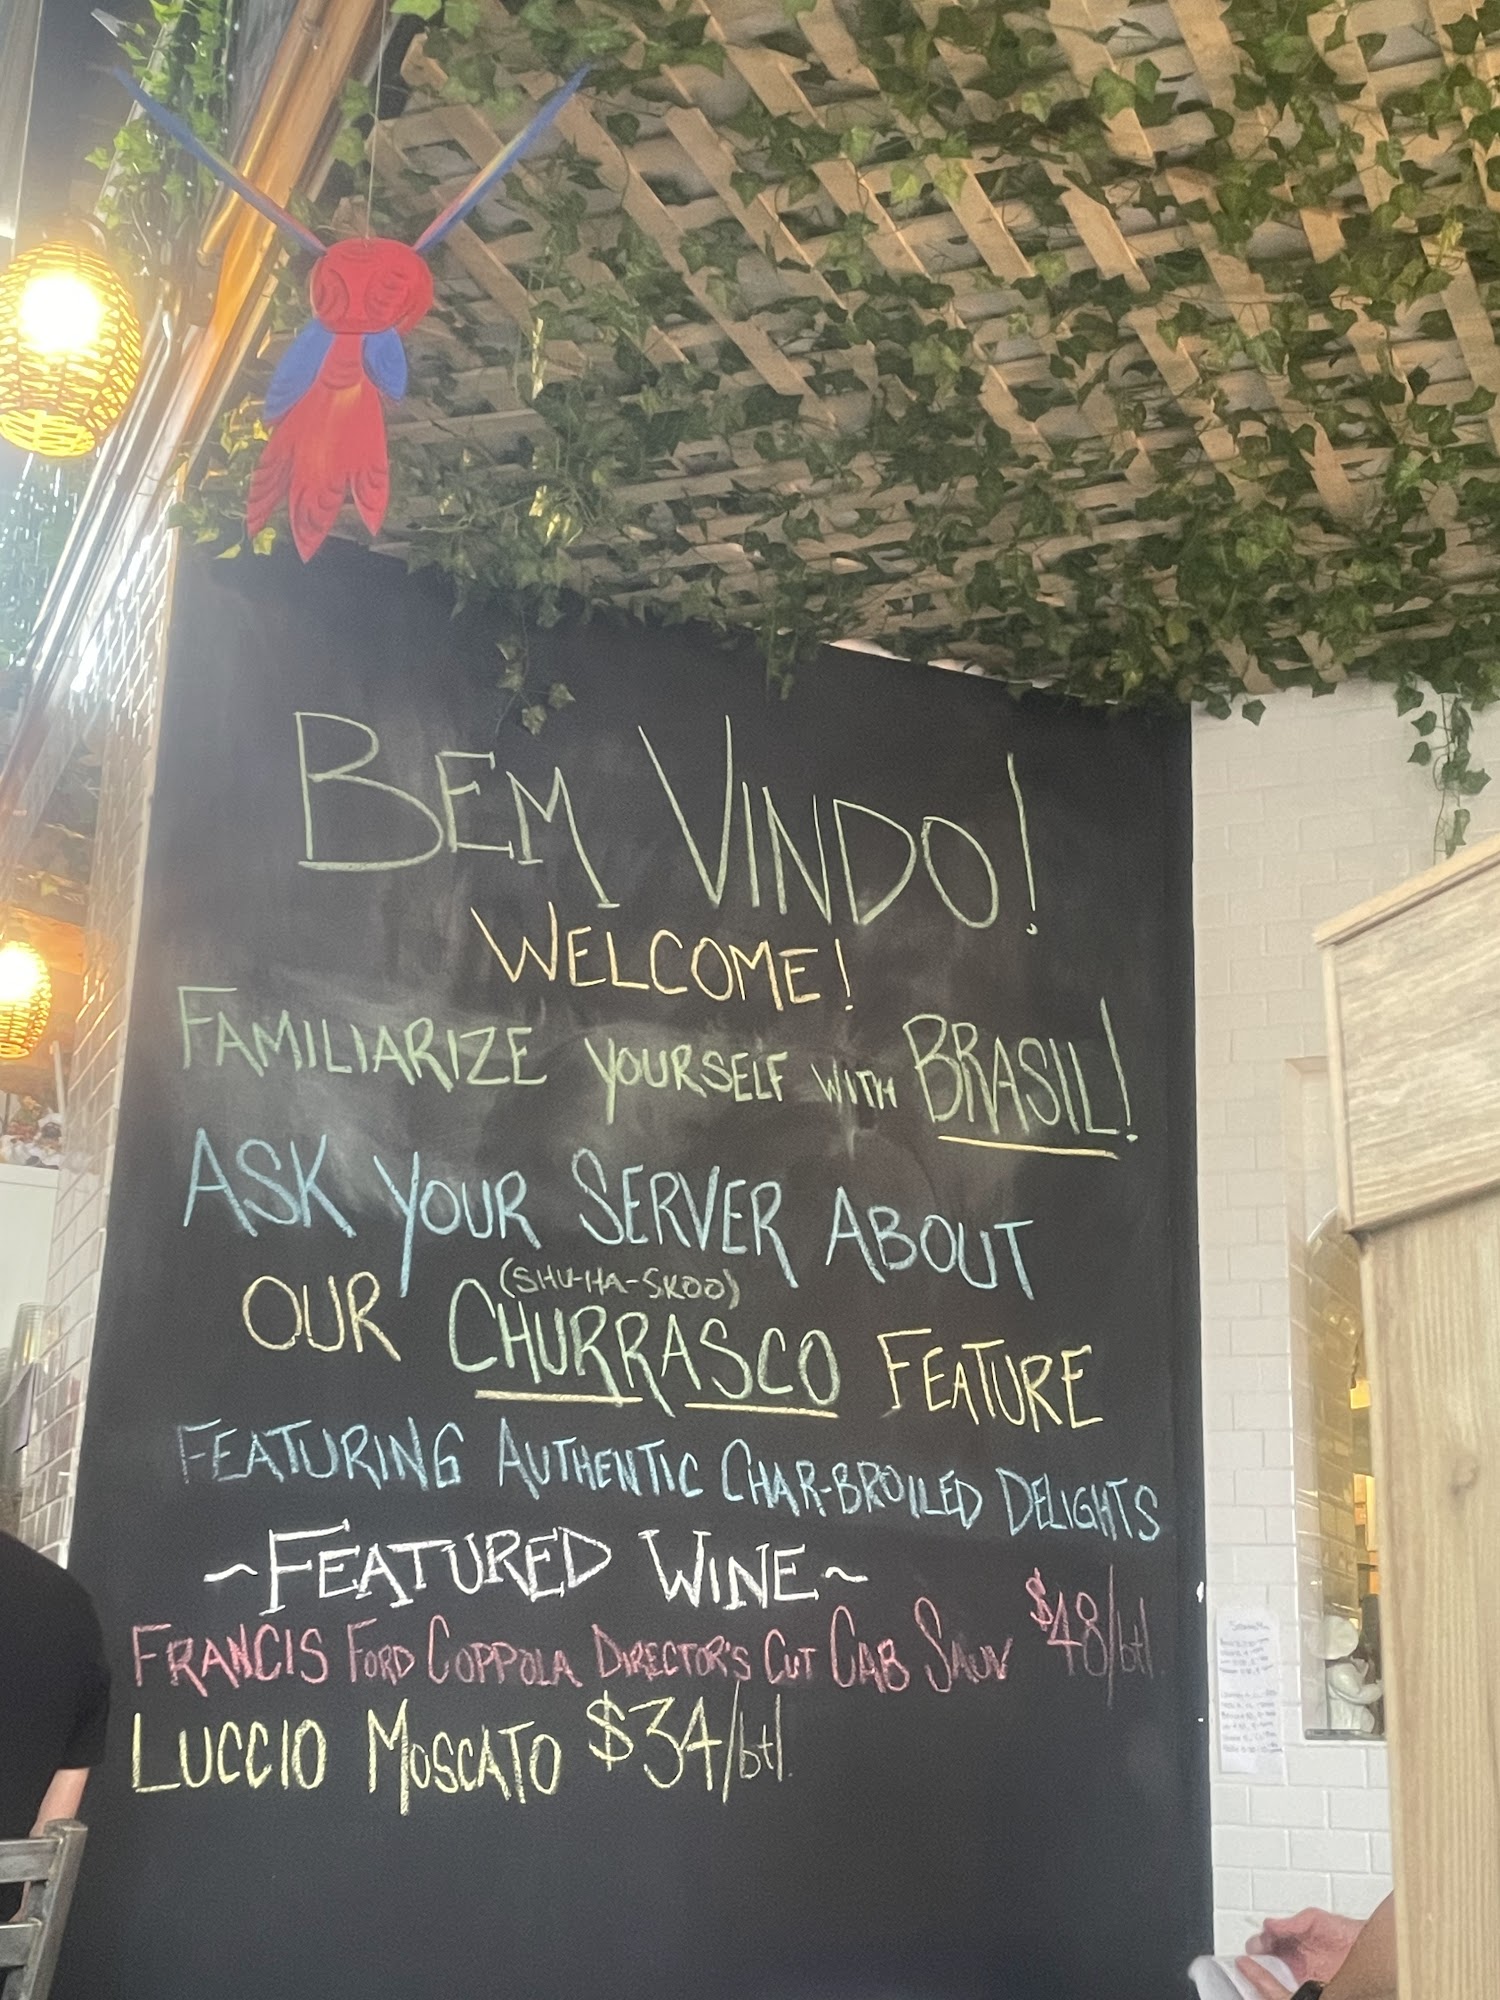 BEM VINDO!
WELCOME!
FAMILIARIZE YOURSELF WITH BRASIL!
ASK YOUR SERVER ABOUT
(SHU-HA-SKOO)
OUR CHURRASCO FEATURE
FEATURING AUTHENTIC CHAR-BROILED DELIGHTS
~FEATURED WINE~
FRANCIS FORD COPPOLA DIRECTOR'S CUT CAB SAUV $48/btl.
LUCCIO MOSCATO $34/btl.